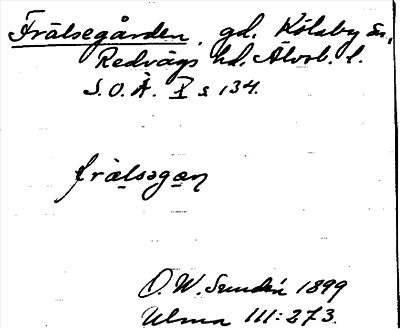 Frälsegården, gd. Kölaby sn,
Redvägs hd. Älvsb. l.
S. O. Ä. X s 134.
frälsəgan
O. W. Sundén 1899
Ulma III:273.